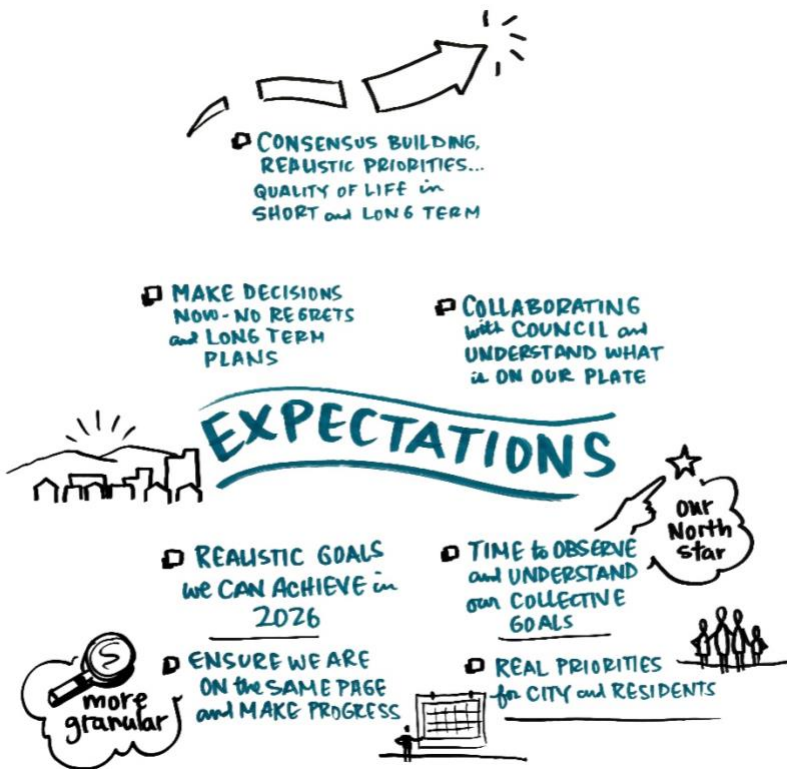 CONSENSUS BUILDING,
REALISTIC PRIORITIES...
QUALITY OF LIFE in
SHORT and LONG TERM
MAKE DECISIONS
NOW - NO REGRETS
and LONG TERM
PLANS
COLLABORATING
with COUNCIL and
UNDERSTAND WHAT
is ON OUR PLATE
EXPECTATIONS
our
North
Star
REALISTIC GOALS
we CAN ACHIEVE in
2026
TIME to OBSERVE
and UNDERSTAND
our COLLECTIVE
GOALS
ENSURE WE ARE
ON the SAME PAGE
and MAKE PROGRESS
REAL PRIORITIES
for CITY and RESIDENTS
S
more
granular